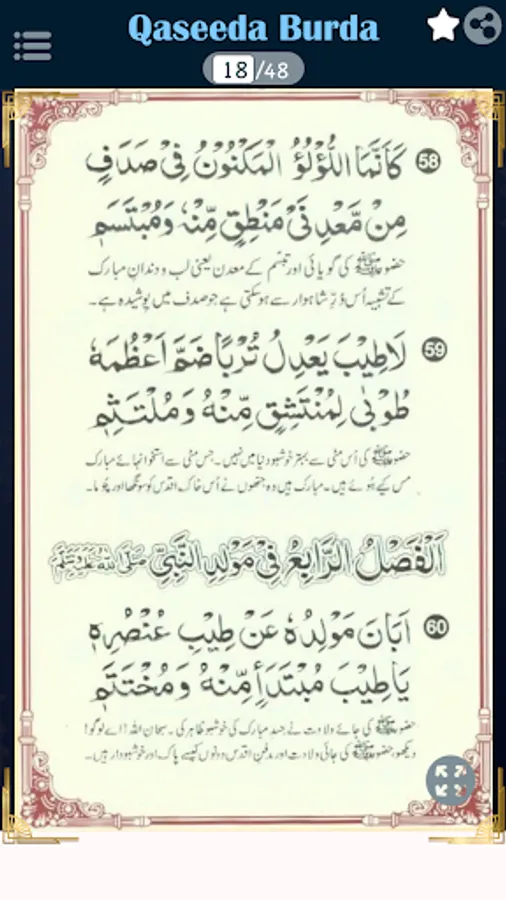 Qaseeda Burda
18/48
58 كَأَنَّمَا اللُّؤْلُؤُ الْمَكْنُوْنُ فِيْ صَدَفٍ
مِنْ مَّعْدِنَيْ مَنْطِقٍ مِّنْهُ وَمُبْتَسَمٖ
حضور ﷺ کی گویائی اور تبسّم کے معدن یعنی لب و دندانِ مبارک
کے تشبیہ اُس دُرِّ شاہوار سے ہو سکتی ہے جو صدف میں پوشیدہ ہے۔
59 لَاطِيْبَ يَعْدِلُ تُرْبًا ضَمَّ اَعْظُمَهٗ
طُوْبٰى لِمُنْتَشِقٍ مِّنْهُ وَمُلْتَثِمٖ
حضور ﷺ کی اُس مٹی سے بہتر خوشبو دنیا میں نہیں۔ جس مٹی سے استخوانہائے مبارک
مس کیے ہوئے ہیں۔ مبارک ہیں وہ جنھوں نے اُس خاک اقدس کو سونگھا اور چُوما۔
اَلْفَصْلُ الرَّابِعُ فِيْ مَوْلِدِ النَّبِيِّ صَلَّى اللهُ عَلَيْهِ وَسَلَّمَ
60 اَبَانَ مَوْلِدُهٗ عَنْ طِيْبِ عُنْصُرِهٖ
يَاطِيْبَ مُبْتَدَأٍ مِّنْهُ وَمُخْتَتَمٖ
حضور ﷺ کی جائے ولادت نے جسد مبارک کی خوشبو ظاہر کی۔ سبحان اللہ! اے لوگو!
دیکھو، حضور ﷺ کی جائی ولادت اور مدفن اقدس دونوں کیسے پاک اور خوشبودار ہیں۔